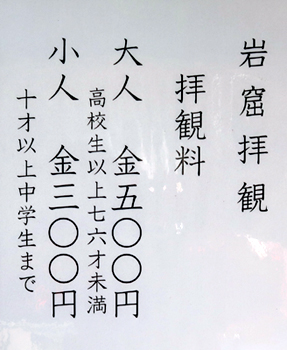 岩窟拝観
拝観料
大人 金五〇〇円
高校生以上七六才未満
小人 金三〇〇円
十才以上中学生まで